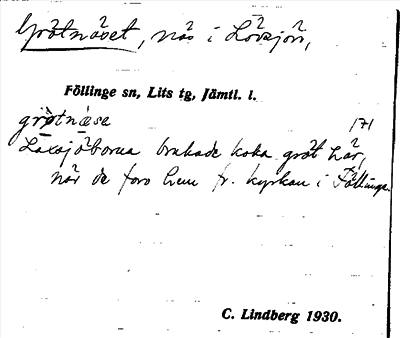 Grötnäset, näs i Lövsjön,
Föllinge sn, Lits tg, Jämtl. l.
grö̀tnæ̀se 171
Laxsjöborna brukade koka gröt här,
när de foro hem fr. kyrkan i Föllinge.
C. Lindberg 1930.